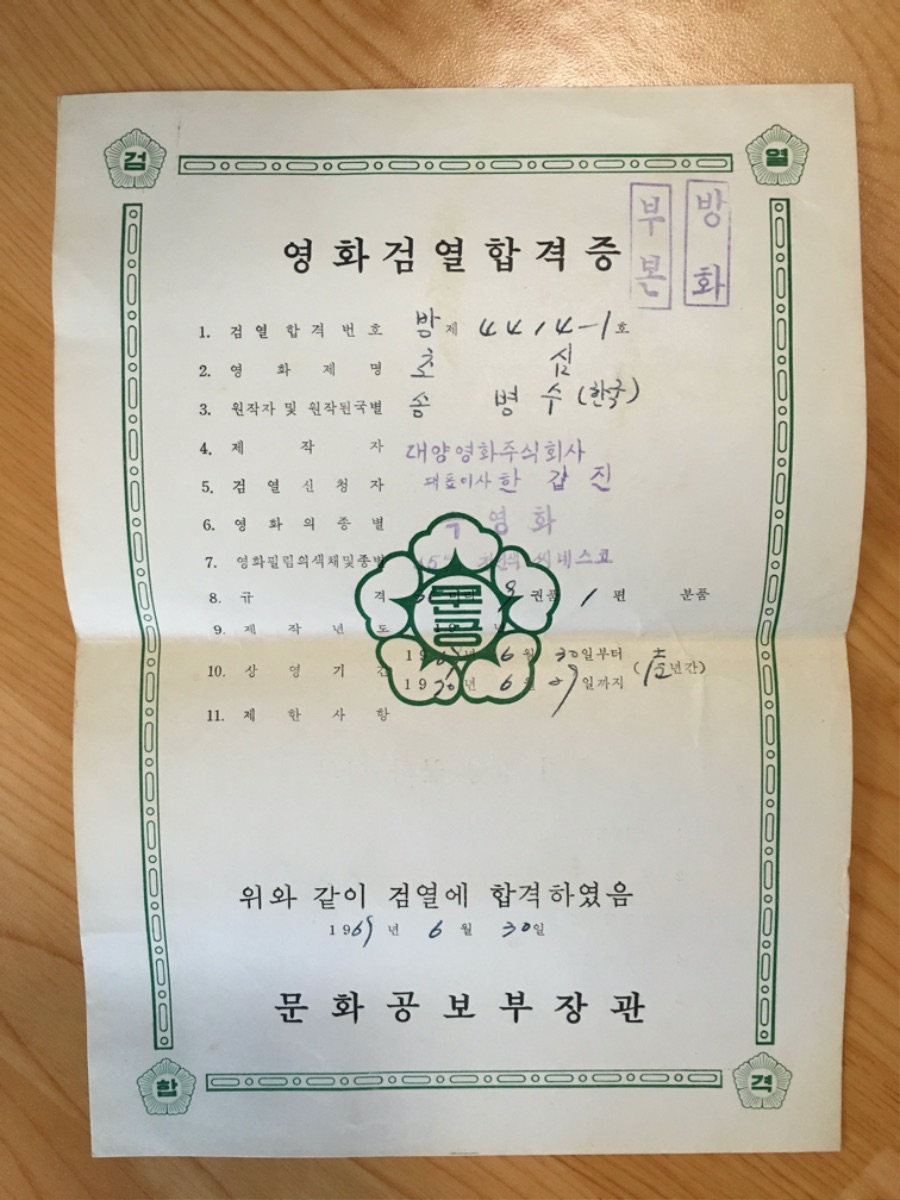 검 열
부본 방화
영화검열합격증
1. 검열합격번호 방 제 4414-1 호
2. 영화제명 초심
3. 원작자 및 원작된국별 송병수 (한국)
4. 제작자 대양영화주식회사
5. 검열신청자 대표이사 한갑진
6. 영화의종별 극영화
7. 영화필림의색채및종별 천연색 씨네스코
8. 규격 9 권품 1 편 분품
9. 제작년도 년
10. 상영기간 196 년 6 월 30일부터
1970년 6월 29일까지 (壱년간)
11. 제한사항
문공
위와 같이 검열에 합격하였음
1969년 6월 30일
문화공보부장관
합 격